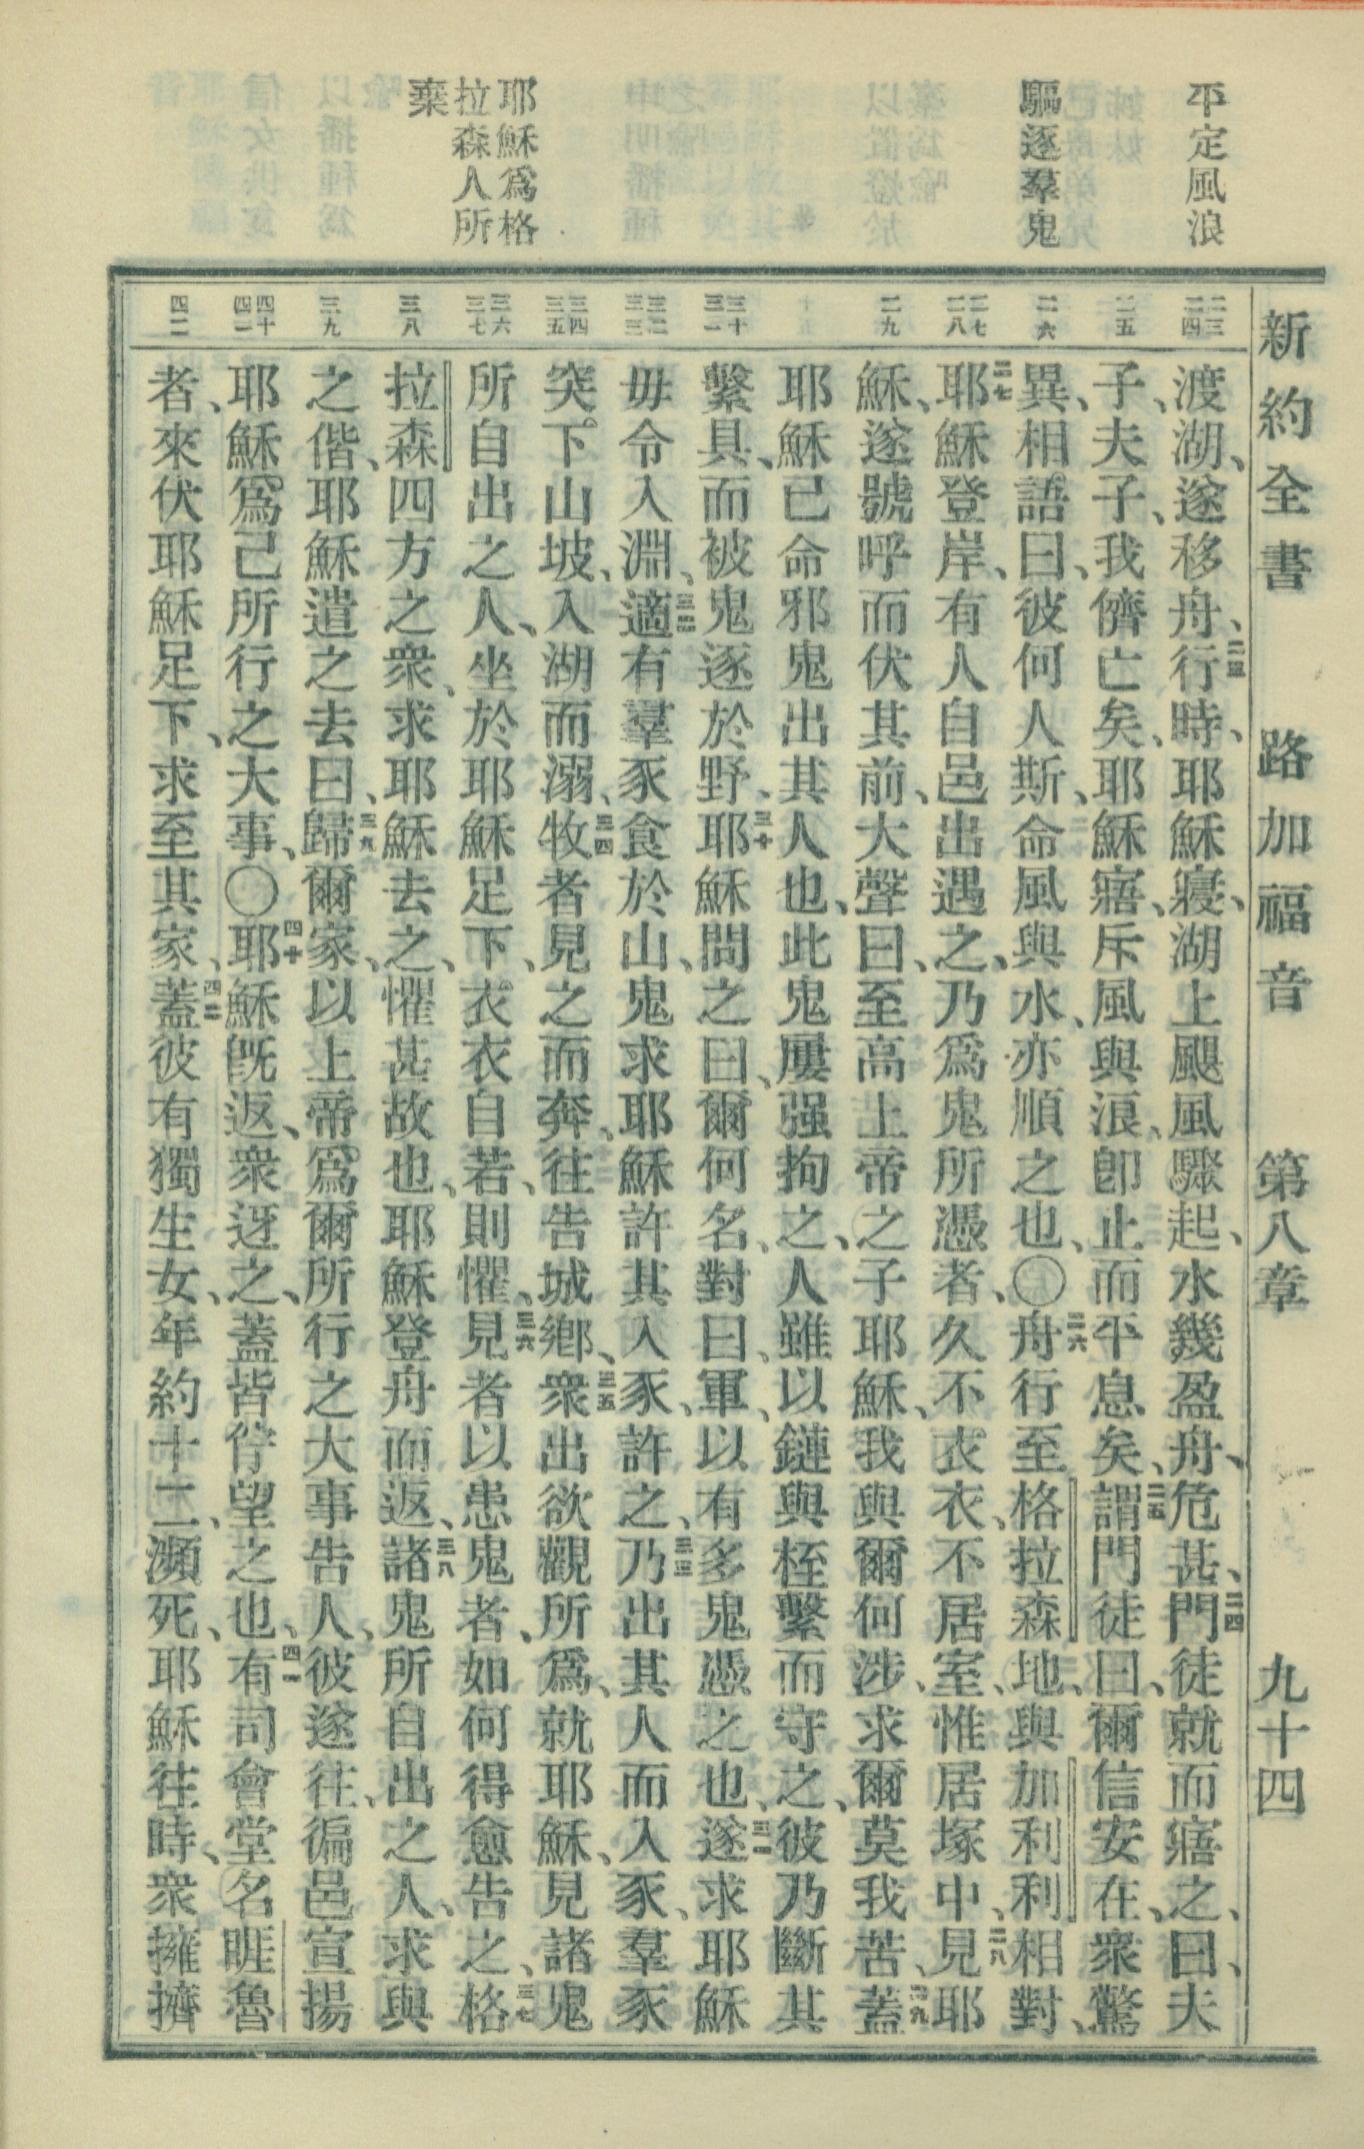 新約全書 路加福音 第八章 九十四
平定風浪
驅逐羣鬼
耶穌爲格
拉森人所
棄
二三 二四
二五
二六
二七 二八
二九
三十 三一
三二 三三
三四 三五
三六 三七
三八
三九
四十 四一
四二
渡湖、遂移舟、二三行時、耶穌寢、湖上颶風驟起、水幾盈舟、危甚、二四門徒就而寤之、曰、夫
子、夫子、我儕亡矣、耶穌寤、斥風與浪、卽止而平息矣、二五謂門徒曰、爾信安在、衆驚
異、相語曰、彼何人斯、命風與水、亦順之也、〇二六舟行至格拉森地、與加利利相對、
二七耶穌登岸、有人自邑出遇之、乃爲鬼所憑者、久不衣衣、不居室、惟居塚中、二八見耶
穌、遂號呼而伏其前、大聲曰、至高上帝之子耶穌、我與爾何涉、求爾莫我苦、二九蓋
耶穌已命邪鬼出其人也、此鬼屢强拘之、人雖以鏈與桎繫而守之、彼乃斷其
繫具、而被鬼逐於野、三十耶穌問之曰、爾何名、對曰、軍、以有多鬼憑之也、三一遂求耶穌
毋令入淵、三二適有羣豕食於山、鬼求耶穌許其入豕、許之、三三乃出其人而入豕、羣豕
突下山坡、入湖而溺、三四牧者見之而奔、往告城鄕、三五衆出欲觀所爲、就耶穌、見諸鬼
所自出之人、坐於耶穌足下、衣衣自若、則懼、三六見者以患鬼者、如何得愈告之、三七格
拉森四方之衆、求耶穌去之、懼甚故也、耶穌登舟而返、三八諸鬼所自出之人、求與
之偕、耶穌遣之去曰、三九歸爾家、以上帝爲爾所行之大事告人、彼遂往、徧邑宣揚
耶穌爲己所行之大事、〇四十耶穌旣返、衆迓之、蓋皆佇望之也、四一有司會堂名睚魯
者、來伏耶穌足下、求至其家、四二蓋彼有獨生女、年約十二、瀕死、耶穌往時、衆擁擠